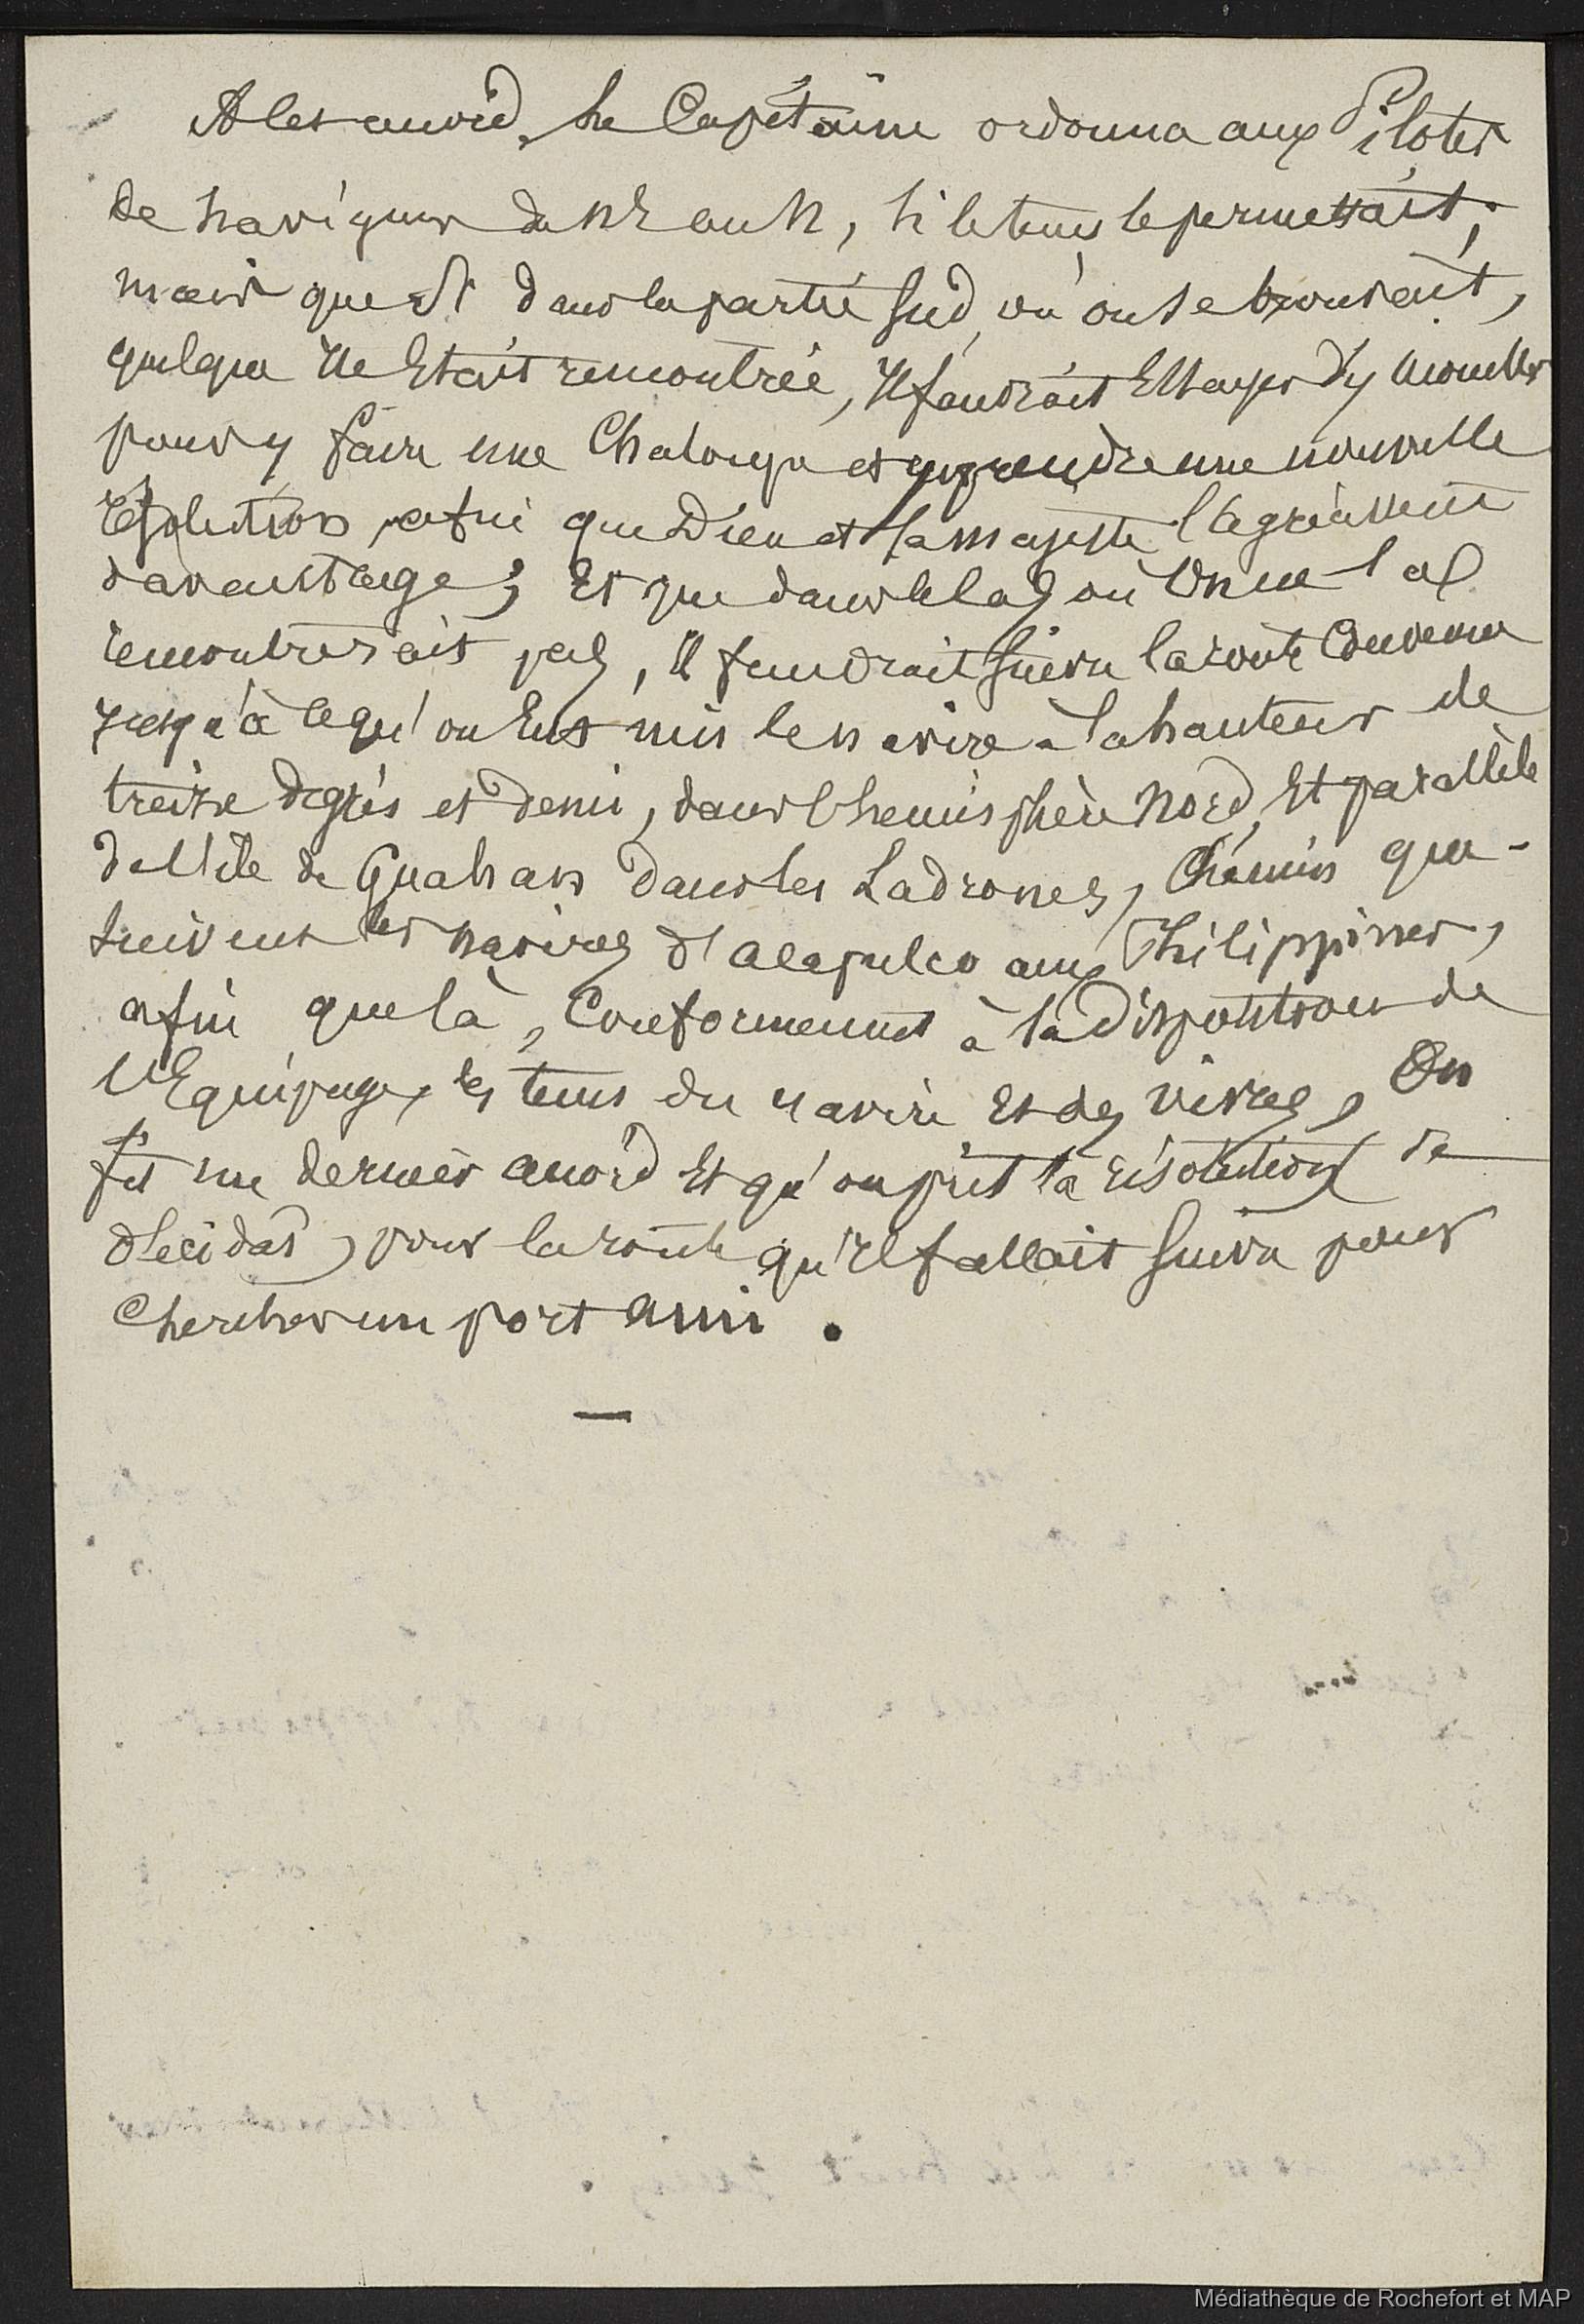 A cet accord, le Capitaine ordonna aux Pilotes
de naviguer du NE au N, si le tems le permettait;
mais que si dans la partie Sud, où on se trouvait,
quelque île était rencontrée, il faudrait Essayer d'y mouiller
pour y faire une Chaloupe et y prendre une nouvelle
résolution, afin que Dieu et Sa majesté l'agréassent
davantage; Et que dans le cas où On ne l'a
rencontrerait pas, il faudrait Suivre la route Convenue
jusqu'à ce qu'on Eut mis le navire à la hauteur de
treize degrés et demi, dans l'hémisphère Nord, Et parallèle
de l'île de Guahan dans les Ladrones, Chemin que
suivent les navires d'Acapulco aux Philippines,
afin que là, Conformement à la Disposition de
l'Equipage, les tems du navire Et des vivres, On
fit un dernier accord Et qu'on prit la résolution de
décidas, pour la route qu'il fallait Suivre pour
Chercher un port ami.
—
Médiathèque de Rochefort et MAP